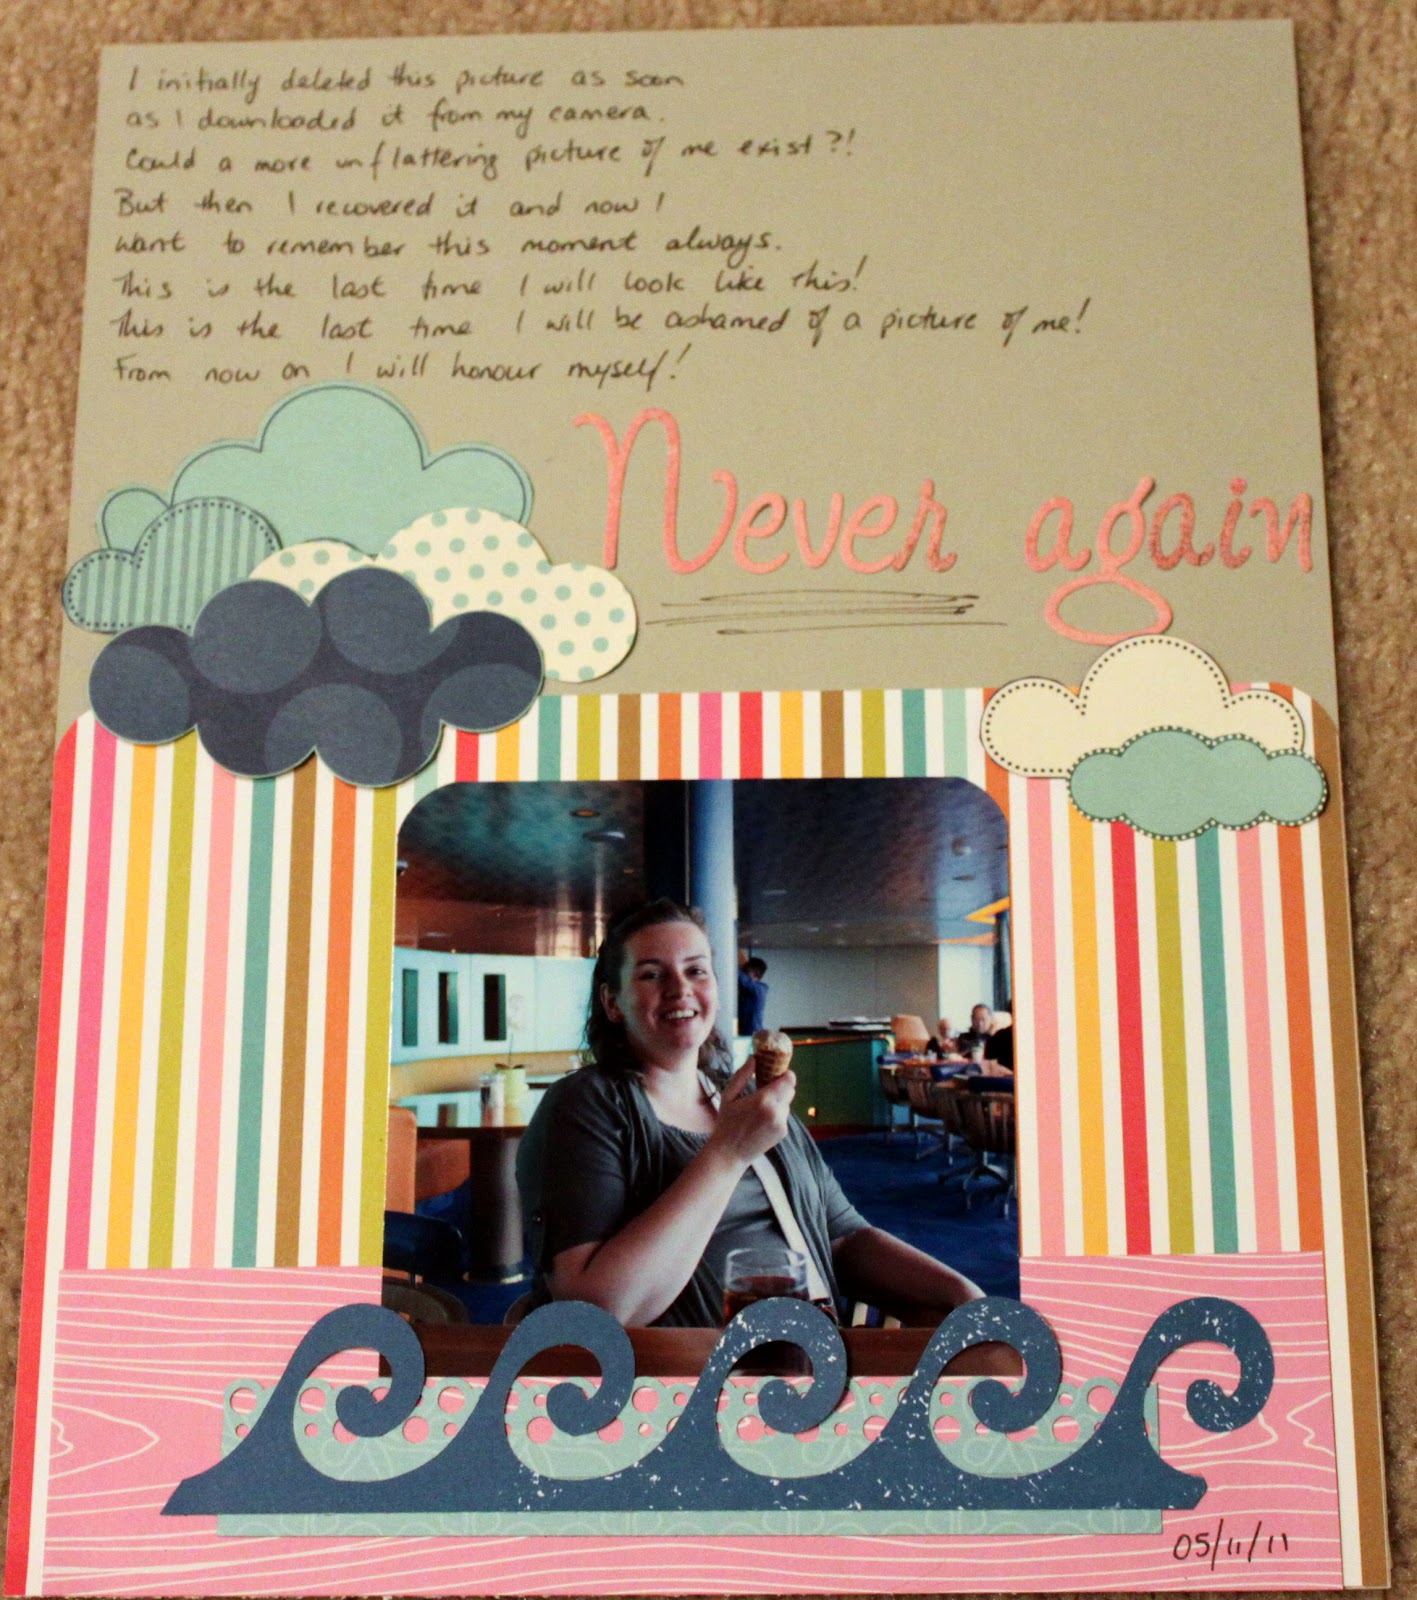 I initially deleted this picture as soon
as I downloaded it from my camera.
Could a more unflattering picture of me exist?!
But then I recovered it and now I
want to remember this moment always.
This is the last time I will look like this!
This is the last time I will be ashamed of a picture of me!
From now on I will honour myself!
Never again
05/11/11